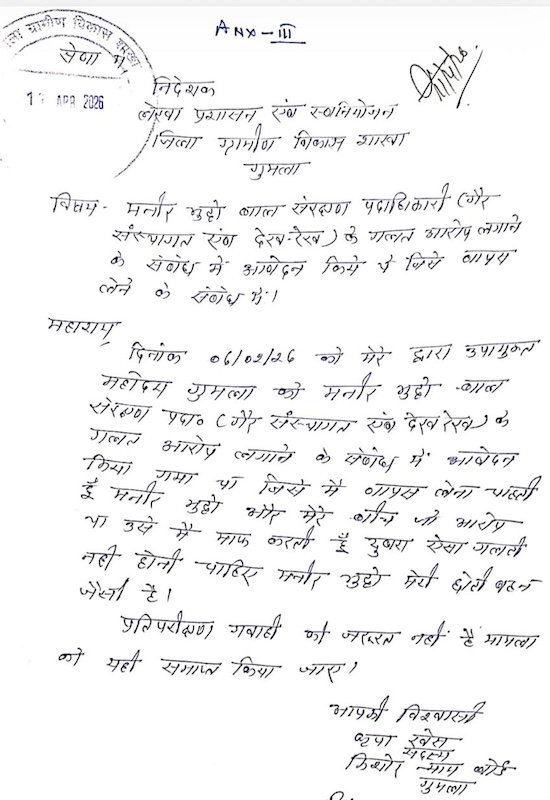 ANX-III
ग्रामीण विकास शाखा
सेवा में
1 APR 2026
निदेशक
लेखा प्रशासन एंव स्वनियोजन
जिला ग्रामीण विकास शाखा
गुमला
विषय- मनीर मुद्दो बाल संरक्षण पदाधिकारी (गैर
संस्थागत एंव देख-रेख) के गलत आरोप लगाने
के संबंध में आवेदन किये थे जिसे वापस
लेने के संबंध में।
महाशय,
दिनांक 06/02/26 को मेरे द्वारा उपायुक्त
महोदय गुमला को मनीर मुद्दो बाल
संरक्षण पदा० (गैर संस्थागत एंव देखरेख) के
गलत आरोप लगाने के संबंध में आवेदन
किया गया था जिसे मैं वापस लेना चाहती
हूँ मनीर मुद्दो और मेरे बीच जो आरोप
था उसे मैं माफ करती हूँ दुबारा ऐसा गलती
नही होनी चाहिए मनीर मुद्दो मेरी छोटी बहन
जैसी है।
प्रतिपरीक्षण गवाही की जरूरत नहीं है मामला
को यही समाप्त किया जाए।
आपकी विश्वासी
कृपा खेस
सदस्य
किशोर न्याय बोर्ड
गुमला